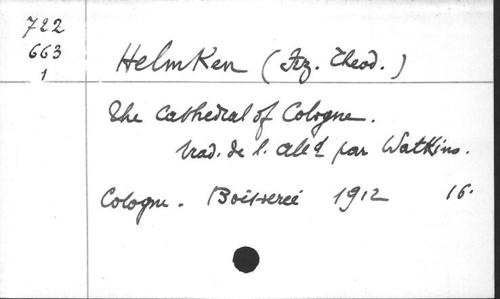 722
663
1
Helmken (Frz. Theod.)
The Cathedral of Cologne.
trad. de l. alld par Watkins.
Cologne. Boisserée 1912 16.